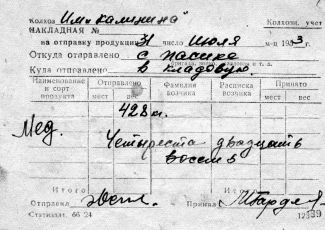 Колхоз Им. Калинина Колхозн. учет
НАКЛАДНАЯ №
на отправку продукции 31 число Июля м-ц 1953 г.
Откуда отправлено с пасики
Куда отправлено в кладовую
Наименование и сорт продукта Отправлено Фамилия возчика Расписка возчика Принято
мест вес мест вес
Мед. 428 к.
Четыреста двадцать
восемь
Итого Итого
Отправил Принял
Статиздат. 66 24